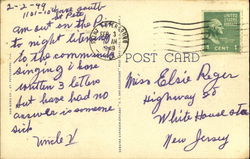 2-2-49
am out on the Pier
to night listening
to the community
singing I have
written 3 letters
but have had no
answer is someone
sick
Uncle V
POST CARD
Miss Elsie Roger
Highway 35
White House Sta
New Jersey
1 CENT 1